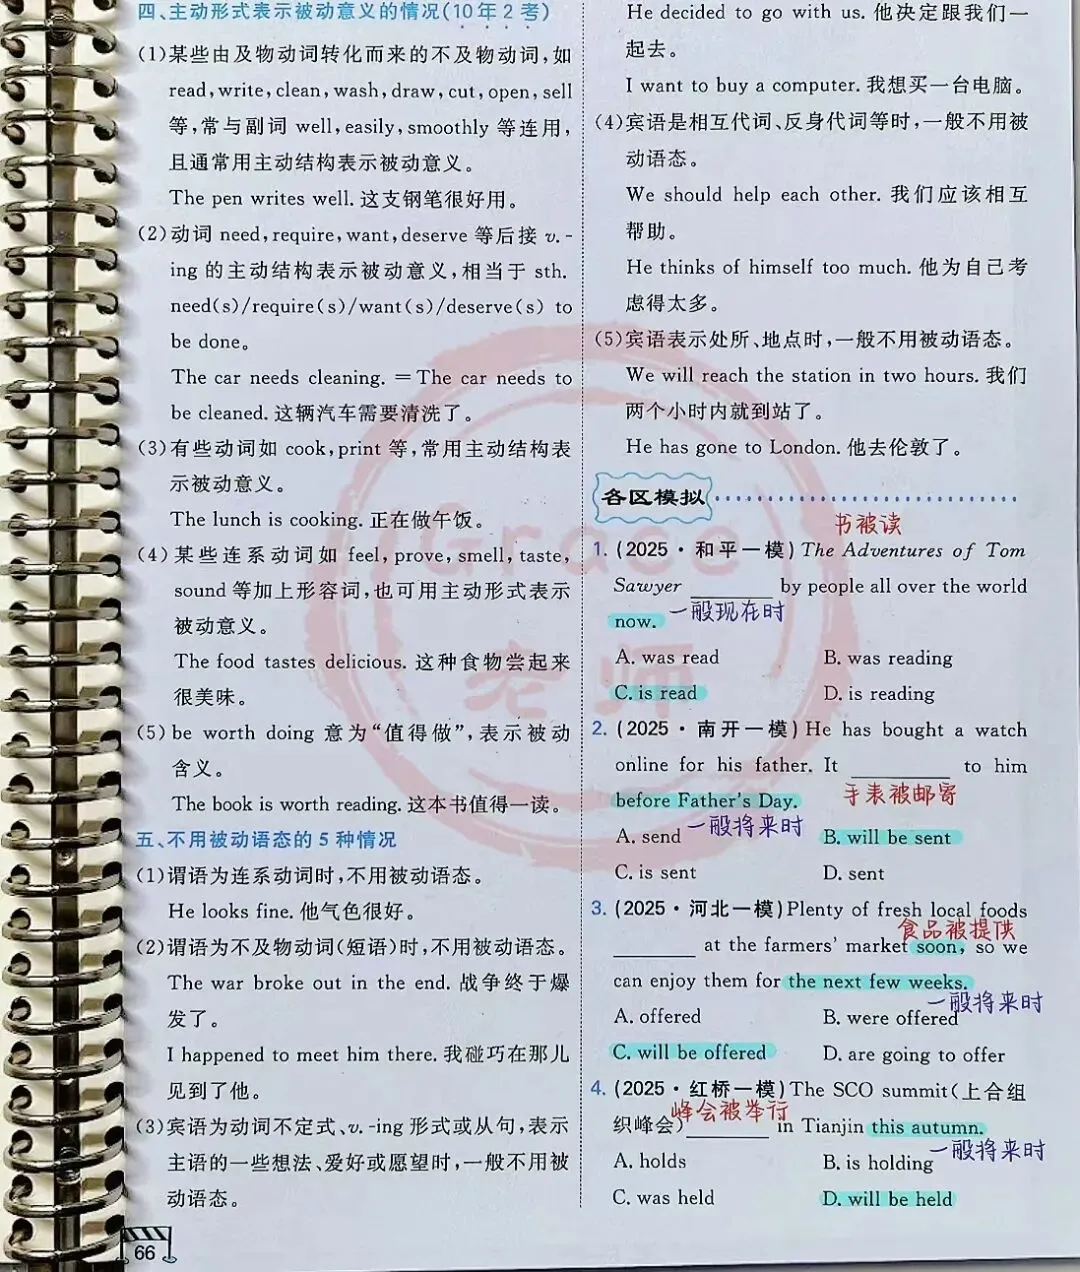 四、主动形式表示被动意义的情况(10年2考)
(1)某些由及物动词转化而来的不及物动词,如
read,write,clean,wash,draw,cut,open,sell
等,常与副词 well,easily,smoothly 等连用,
且通常用主动结构表示被动意义。
The pen writes well. 这支钢笔很好用。
(2)动词 need,require,want,deserve 等后接 v.-
ing 的主动结构表示被动意义,相当于 sth.
need(s)/require(s)/want(s)/deserve(s) to
be done。
The car needs cleaning. =The car needs to
be cleaned. 这辆汽车需要清洗了。
(3)有些动词如 cook,print 等,常用主动结构表
示被动意义。
The lunch is cooking. 正在做午饭。
(4)某些连系动词如 feel,prove,smell,taste,
sound 等加上形容词,也可用主动形式表示
被动意义。
The food tastes delicious. 这种食物尝起来
很美味。
(5)be worth doing 意为“值得做”,表示被动
含义。
The book is worth reading. 这本书值得一读。
五、不用被动语态的5种情况
(1)谓语为连系动词时,不用被动语态。
He looks fine. 他气色很好。
(2)谓语为不及物动词(短语)时,不用被动语态。
The war broke out in the end. 战争终于爆
发了。
I happened to meet him there. 我碰巧在那儿
见到了他。
(3)宾语为动词不定式、v.-ing 形式或从句,表示
主语的一些想法、爱好或愿望时,一般不用被
动语态。
66
He decided to go with us. 他决定跟我们一
起去。
I want to buy a computer. 我想买一台电脑。
(4)宾语是相互代词、反身代词等时,一般不用被
动语态。
We should help each other. 我们应该相互
帮助。
He thinks of himself too much. 他为自己考
虑得太多。
(5)宾语表示处所、地点时,一般不用被动语态。
We will reach the station in two hours. 我们
两个小时内就到站了。
He has gone to London. 他去伦敦了。
各区模拟
书被读
1. (2025·和平一模)The Adventures of Tom
Sawyer ________ by people all over the world
now. 一般现在时
A. was read B. was reading
C. is read D. is reading
2. (2025·南开一模)He has bought a watch
online for his father. It ________ to him
before Father's Day. 手表被邮寄
A. send 一般将来时 B. will be sent
C. is sent D. sent
3. (2025·河北一模)Plenty of fresh local foods
食品被提供
________ at the farmers' market soon, so we
can enjoy them for the next few weeks.
一般将来时
A. offered B. were offered
C. will be offered D. are going to offer
4. (2025·红桥一模)The SCO summit(上合组
峰会被举行
织峰会)________ in Tianjin this autumn.
一般将来时
A. holds B. is holding
C. was held D. will be held
Grace
老师